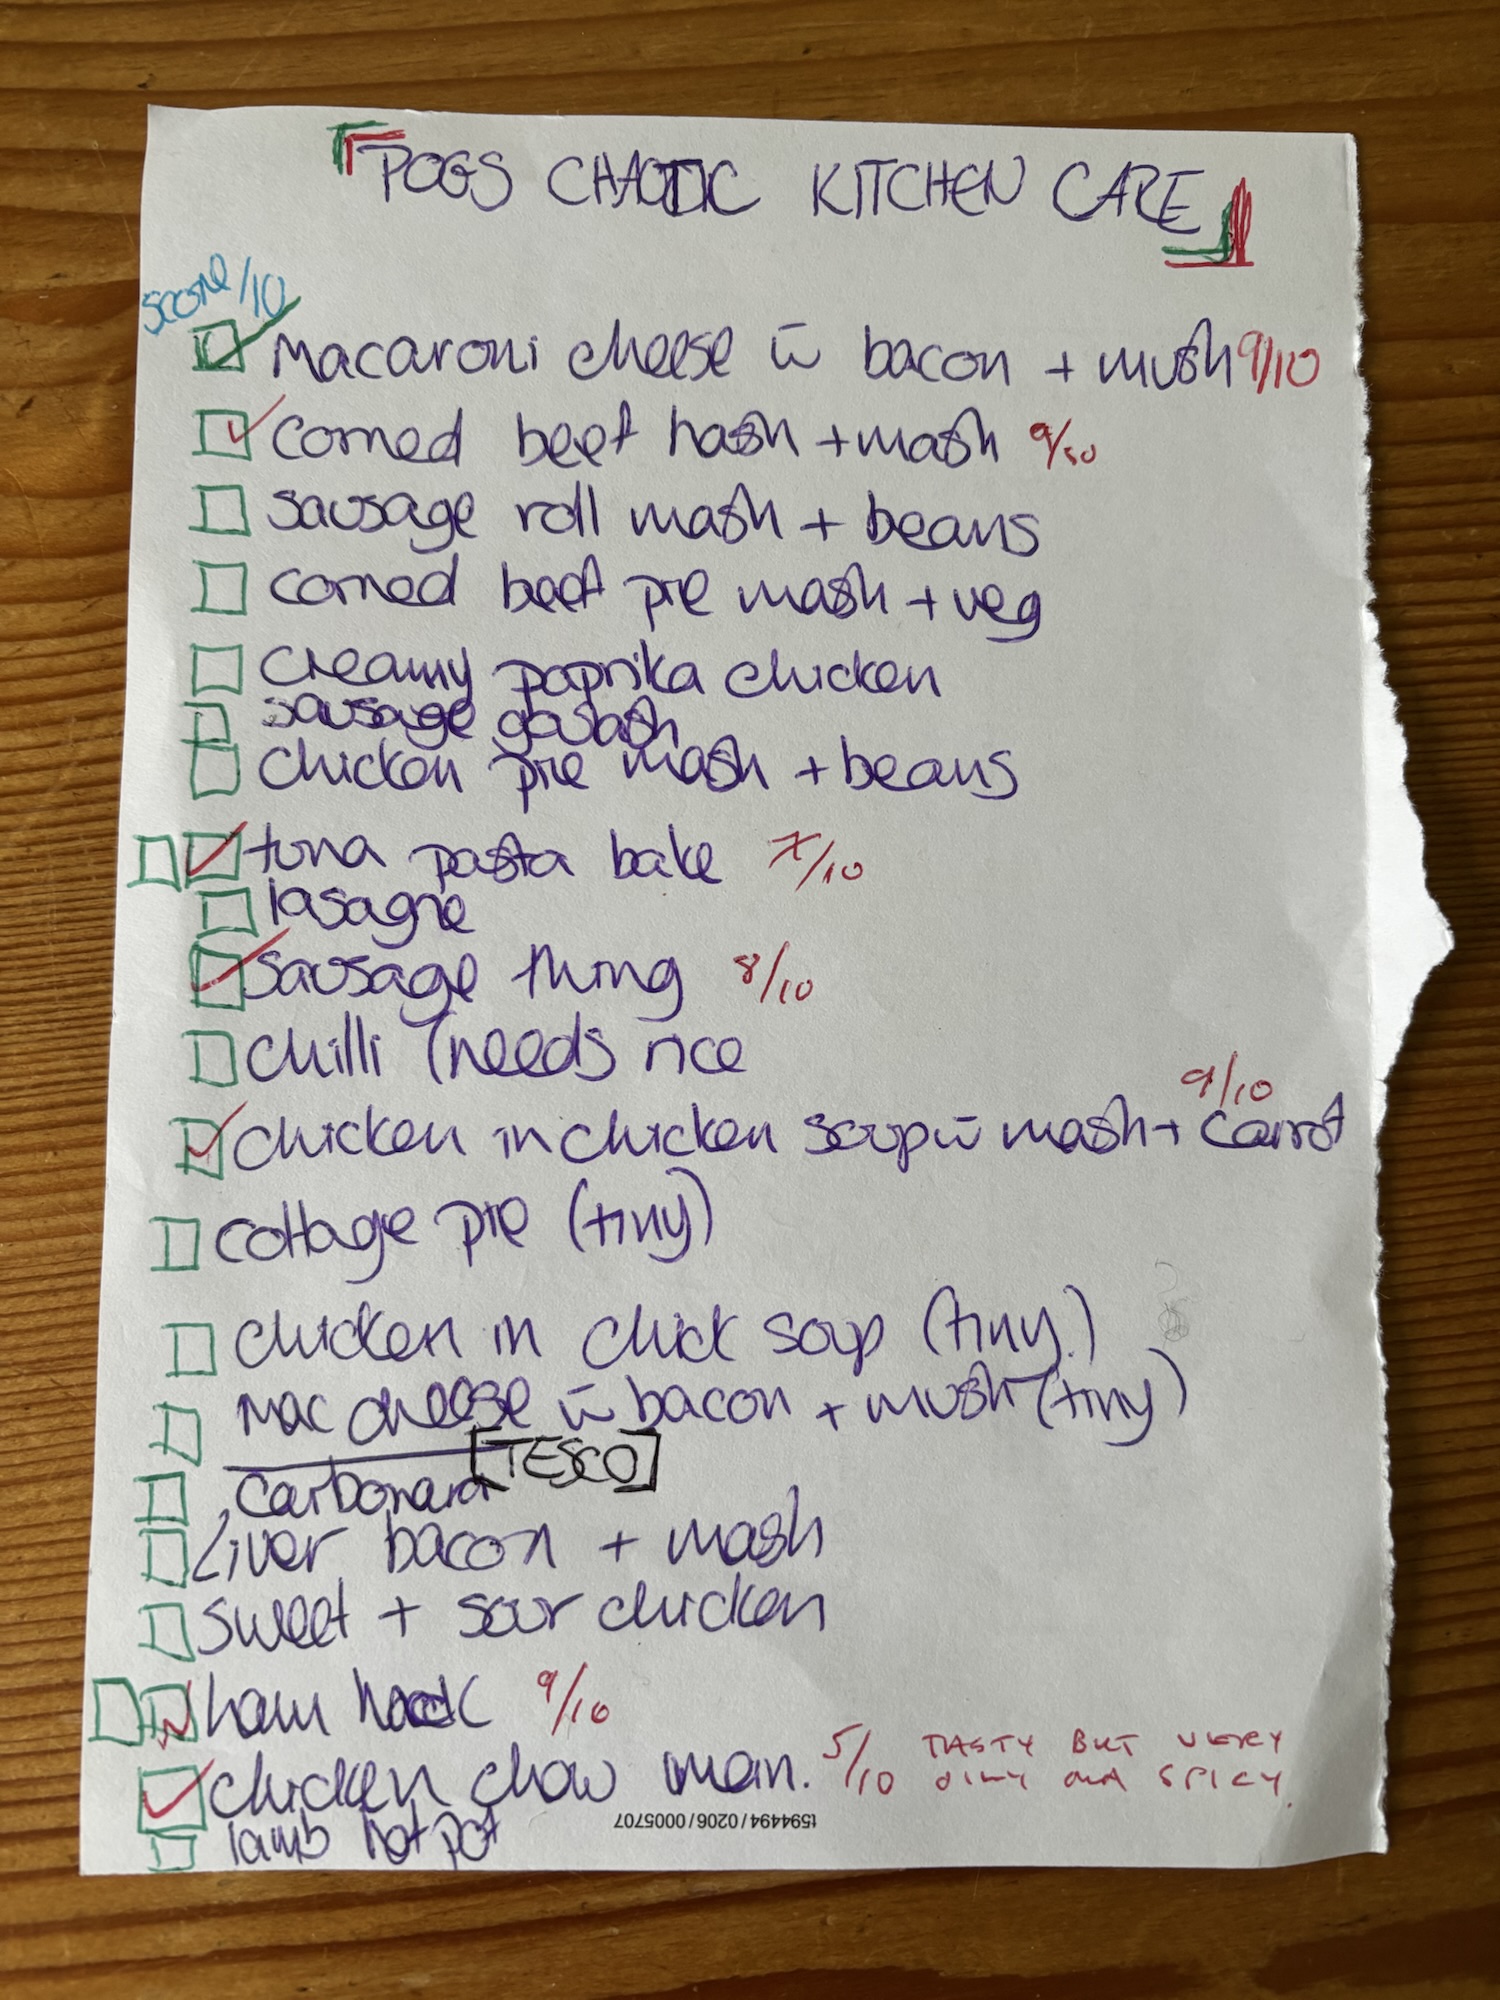 POGS CHAOTIC KITCHEN CARE
score/10
Macaroni cheese w̄ bacon + mush 9/10
corned beef hash + mash 9/10
sausage roll mash + beans
corned beef pie mash + veg
creamy paprika chicken
sausage goulash
chicken pie mash + beans
tuna pasta bake 7/10
lasagne
sausage thing 8/10
chilli (needs rice
9/10
chicken in chicken soup w̄ mash + carrot
cottage pie (tiny)
chicken in chick soup (tiny.)
Mac cheese w̄ bacon + mush (tiny)
[TESCO]
carbonara
Liver bacon + mash
sweet + sour chicken
ham hock 9/10
chicken chow mein. 5/10 TASTY BUT VERY
OILY AND SPICY.
t594494/0206/0005707
lamb hot pot